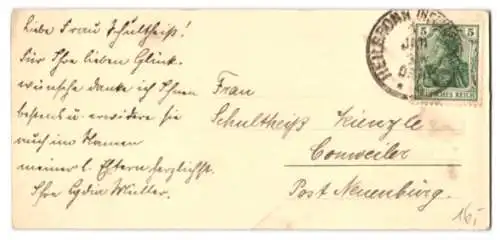 Liebe Frau Schultheiß!
Für Ihre lieben Glück-
wünsche danke ich Ihnen
bestens u. erwidere sie
auch im Namen
meiner l. Eltern herzlichst.
Ihre Lydia Müller.
Frau
Schultheiß Kienzle
Conweiler
Post Neuenburg.
HEILBRONN
JAN
5 5
DEUTSCHES REICH
16,-